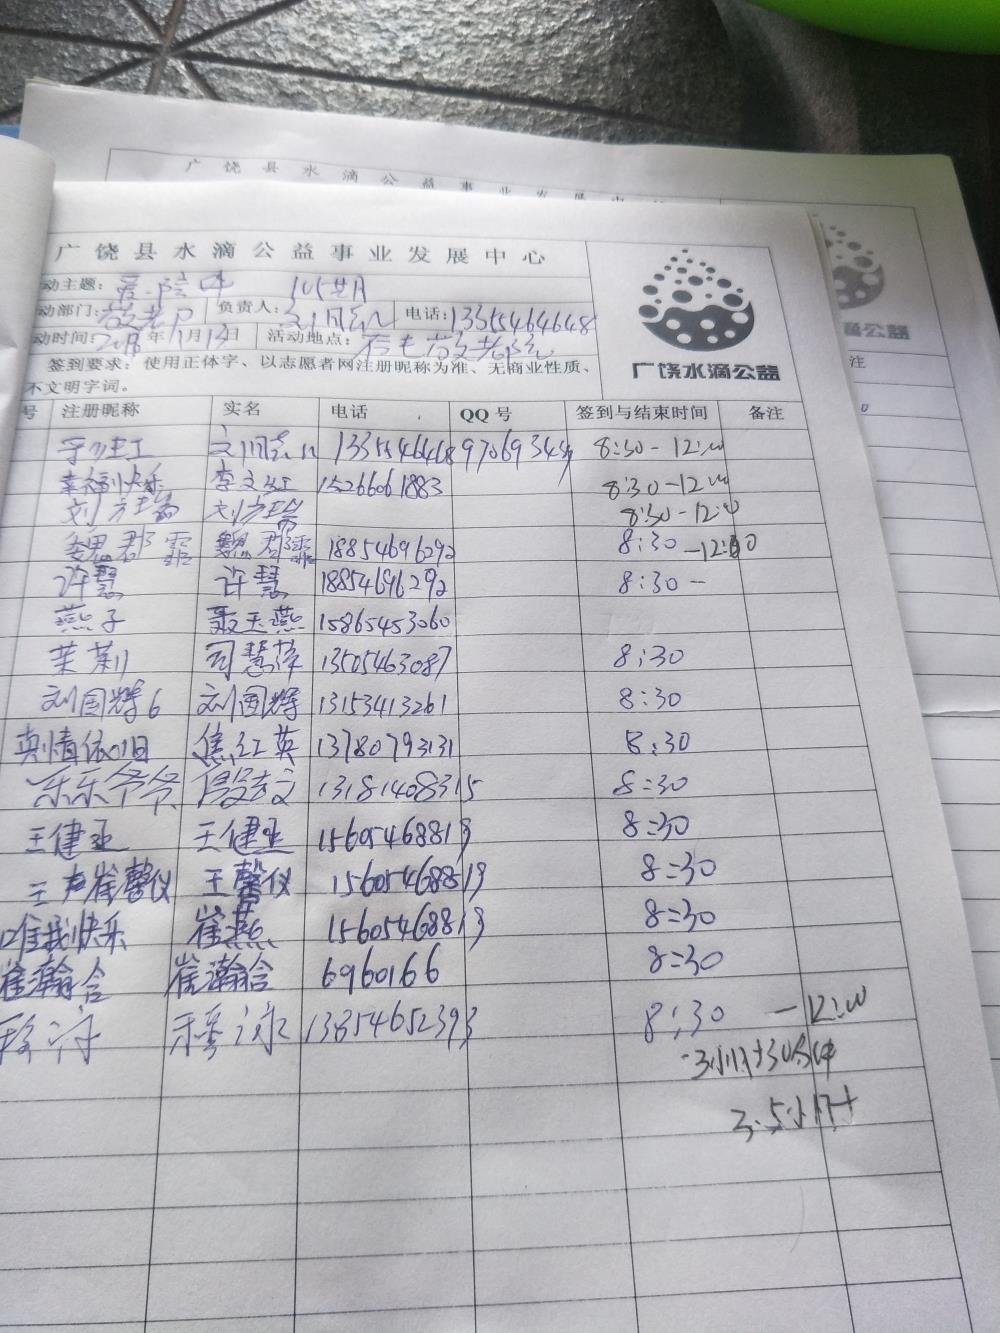 广饶县水滴公益事业发展中
广饶县水滴公益事业发展中心
动主题:
动部门: 敬老 负责人: 电话: 13355464648
动时间: 年11月 日 活动地点: 敬老院
签到要求:使用正体字、以志愿者网注册昵称为准、无商业性质、
不文明字词。
广饶水滴公益
滴公益
注
号 注册昵称 实名 电话 QQ号 签到与结束时间 备注
8:30-12:00
幸福快乐 李文红 15266061883 8:30-12:00
刘方瑞 刘方瑞 8:30-12:00
魏郡霏 魏郡霏 18854696292 8:30-12:00
许慧 许慧 18854696292 8:30-
燕子 聂玉燕 15865453060
茉莉 司慧萍 13505463087 8:30
刘国辉6 刘国辉 13153413261 8:30
真情依旧 焦红英 13780793131 8:30
乐乐爷爷 13181408315 8:30
王健亚 王健亚 15605468819 8:30
王 崔馨仪 王馨仪 15605468819 8:30
唯我快乐 崔燕 15605468819 8:30
崔瀚含 崔瀚含 6960166 8:30
13854652393 8:30 -12:00
3小时30分钟
3.5小时